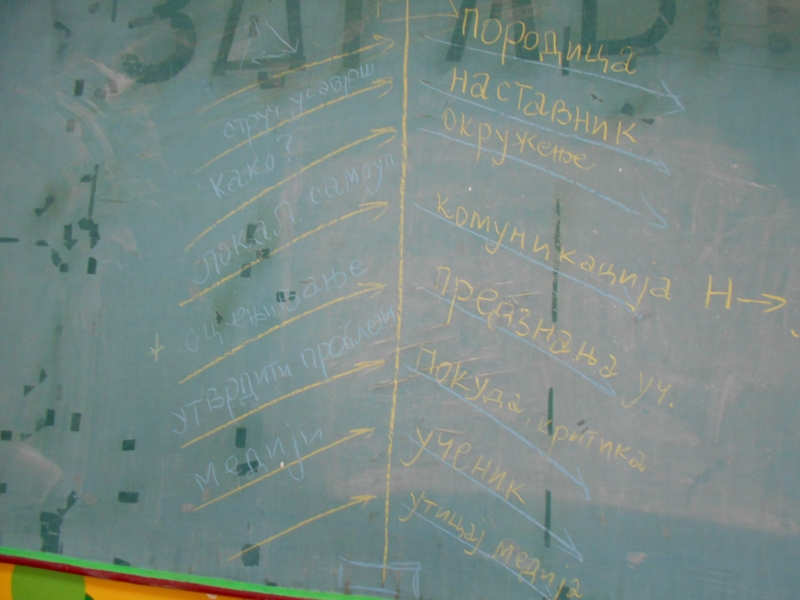 струч. усаврш.
како?
локал. самоуп.
оцењивање
утврдити проблем
медији
породица
наставник
окружење
комуникација Н →
предзнања уч.
покуда, критика
ученик
утицај медија